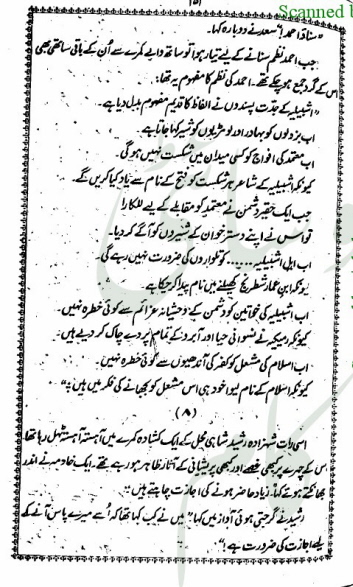 Scanned
"سناؤ احمد!" سعد نے دوبارہ کہا۔
جب احمد نظم سنانے کے لیے تیار ہوا تو ساتھ والے کمرے سے اُن کے باقی ساتھی بھی
اس کے گرد جمع ہو چکے تھے۔ احمد کی نظم کا مفہوم یہ تھا:
"اشبیلیہ کے جدت پسندوں نے الفاظ کا قدیم مفہوم بدل دیا ہے۔
اب بزدلوں کو بہادر اور لومڑیوں کو شیر کہا جاتا ہے۔
اب معتمد کی افواج کو کسی میدان میں شکست نہیں ہو گی۔
کیونکہ اشبیلیہ کے شاعر ہر شکست کو فتح کے نام سے یاد کیا کریں گے۔
جب ایک حقیر دشمن نے معتمد کو مقابلے کے لیے للکارا
تو اس نے اپنے دسترخوان کے شیروں کو آگے کر دیا۔
اب اہل اشبیلیہ...... کو تلواروں کی ضرورت نہیں رہے گی۔
کیونکہ ابن عمار شطرنج کھیلنے میں نام پیدا کر چکا ہے۔
اب اشبیلیہ کی خواتین کو دشمن کے وحشیانہ عزائم سے کوئی خطرہ نہیں۔
کیونکہ رمیکیہ نے نسوانی حیا اور آبرو کے تمام پردے چاک کر دیے ہیں۔
اب اسلام کی مشعل کو کفر کی آندھیوں سے کوئی خطرہ نہیں۔
کیونکہ اسلام کے نام لیوا خود ہی اس مشعل کو بجھانے کی فکر میں ہیں۔"
(۸)
اسی رات شہزادہ رشید شاہی محل کے ایک کشادہ کمرے میں آہستہ آہستہ ٹہل رہا تھا
اس کے چہرے پر کبھی غصے اور کبھی پریشانی کے آثار ظاہر ہو رہے تھے۔ ایک خادمہ نے اندر
جھانکتے ہوئے کہا۔ زیاد حاضر ہونے کی اجازت چاہتے ہیں۔"
رشید نے گرجتی ہوئی آواز میں کہا۔ "میں نے کب کہا تھا کہ اُسے میرے پاس آنے کے
لیے اجازت کی ضرورت ہے!"